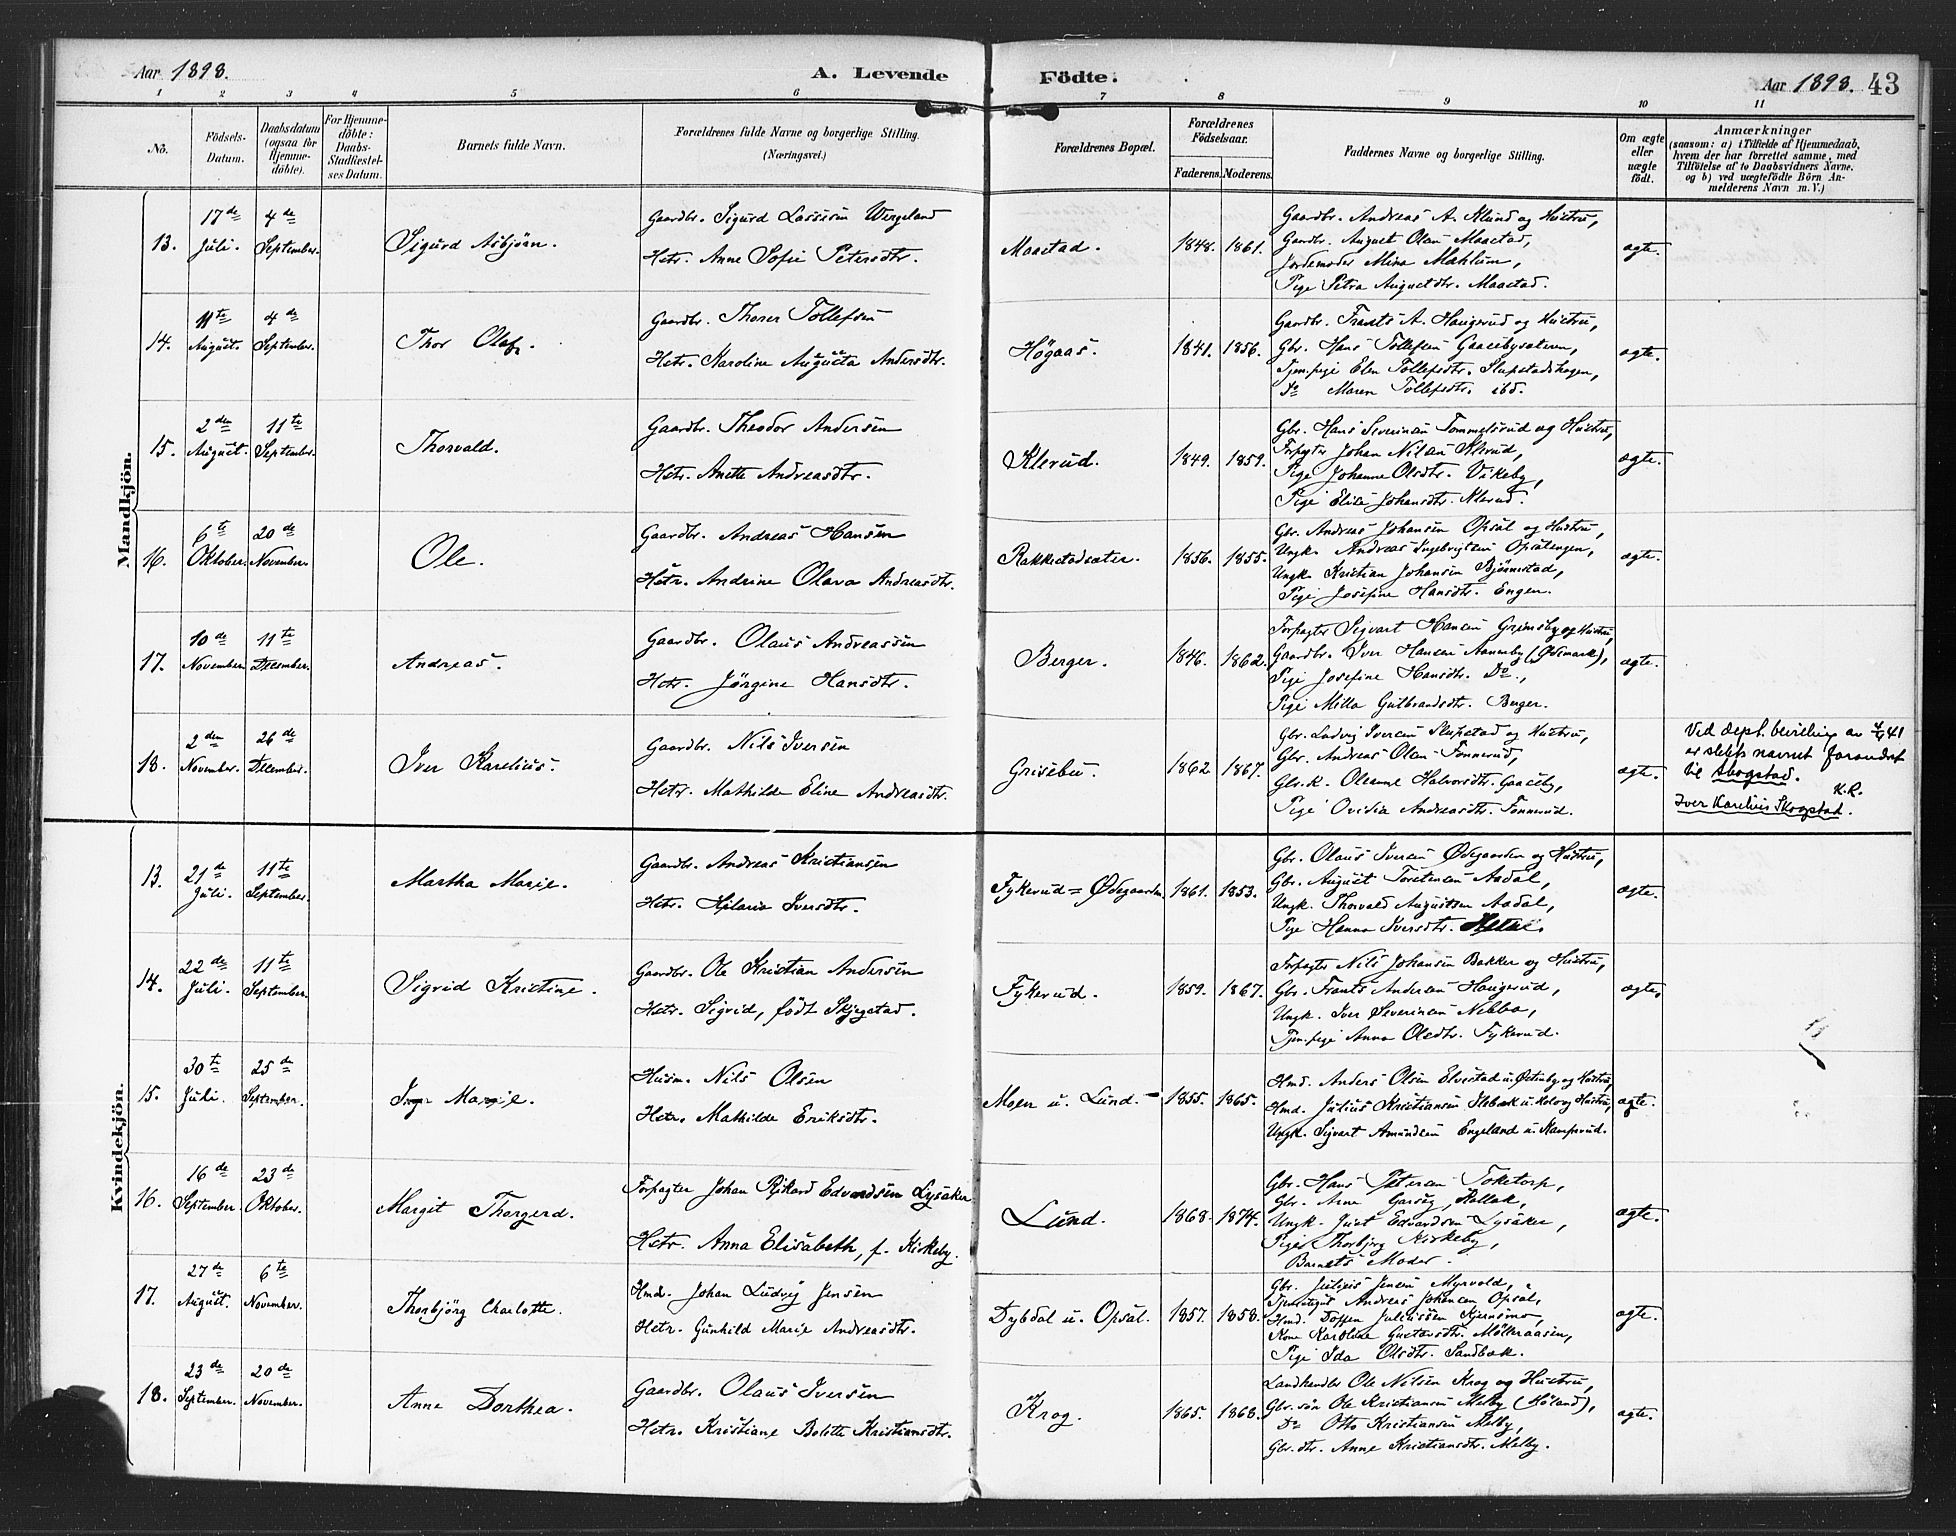 Aar 1898.
A. Levende Födte.
Aar 1898. 43
1 2 3 4 5 6 7 8 9 10 11
No.
Födsels-Datum.
Daabsdatum (ogsaa for Hjemme-döbte).
For Hjemme-döbte: Daabs-Stadfæstel-ses Datum.
Barnets fulde Navn.
Forældrenes fulde Navne og borgerlige Stilling. (Næringsvei.)
Forældrenes Bopæl.
Forældrenes Födselsaar.
Faderens. Moderens.
Faddernes Navne og borgerlige Stilling.
Om ægte eller uægte födt.
Anmærkninger
(saasom: a) i Tilfælde af Hjemmedaab,
hvem der har forrettet samme, med
Tilföielse af to Daabsvidners Navne.
og b) ved uægtefödte Börn An-
melderens Navn m. V.)
Mandkjön.
13. 17de Juli. 4de September. Sigurd Asbjörn.
Gaardbr. Sigurd Lassesen Wergeland
Hstr. Anne Sofie Petersdtr.
Maastad. 1848. 1861.
Gaardbr. Andreas A. Klund og Hustru,
Gaardbr. August Olsen Maastad,
Jordemoder Mina Mahlum,
Pige Petra Augustdtr. Maastad.
ægte.
14. 11te August. 4de September. Thor Olaf.
Gaardbr. Thorer Tollefsen
Hstr. Karoline Augusta Andersdtr.
Högaas. 1841. 1856.
Gaardbr. Frants A. Haugerud og Hustru,
Gbr. Hans Tollefsen Gaasebysæteren,
Tjen.pige Elen Tollefsdtr. Slupstadhagen,
Do Maren Tollefsdtr. ibd.
ægte.
15. 2den August. 11te September. Thorvald.
Gaardbr. Theodor Andersen
Hstr. Anette Andreasdtr.
Klerud. 1849. 1859.
Gbr. Hans Severinsen Tommelsrud og Hustru,
Forpagter Johan Nilsen Klerud,
Pige Johanne Olsdtr. Vikeby,
Pige Elise Johansdtr. Klerud.
ægte.
16. 6te Oktober. 20de November. Ole.
Gaardbr. Andreas Hansen
Hstr. Andrine Olava Andreasdtr.
Rakkestadsæter. 1856. 1855.
Gbr. Andreas Johansen Opsal og Hustru,
Ungk. Andreas Ingebrigtsen Opsalengen,
Ungk. Kristian Johansen Bjørnstad,
Pige Josefine Hansdtr. Engen.
ægte.
17. 10de November. 11te December. Andreas.
Gaardbr. Olaus Andreassen
Hstr. Jörgine Hansdtr.
Berger. 1846. 1862.
Forpagter Sigvart Hansen Grimsby og Hustru,
Gaardbr. Iver Hansen Aanneby (Ødemark),
Pige Josefine Hansdtr. Do.,
Pige Milla Gulbrandsdtr. Berger.
ægte.
18. 2den November. 26de December. Iver Karelius.
Gaardbr. Nils Iversen
Hstr. Mathilde Eline Andreasdtr.
Grisebu. 1862 1867.
Gbr. Ludvig Iversen Slupstad og Hustru,
Gbr. Andreas Olsen Tonnerud,
Gbr.k. Oleanne Halvorsdtr. Gaaseby,
Pige Ovidia Andreasdtr. Tonnerud.
ægte.
Ved dept. bevilling av 41
er slekts navnet forandret
til Skogstad.
K.R.
Iver Karelius Skogstad.
Kvindekjön.
13. 21de Juli. 11te September. Martha Marie.
Gaardbr. Andreas Kristiansen
Hstr. Hilaria Iversdtr.
Fykerud=Ødegaarden 1861. 1853.
Gbr. Olaus Iversen Ødegaarden og Hustru,
Gbr. August Torstensen Aadal,
Ungk. Thorvald Augustsen Aadal,
Pige Hanna Iversdtr.
ægte.
14. 22de Juli. 11te September. Sigrid Kristine.
Gaardbr. Ole Kristian Andersen
Hstr. Sigrid, født Skjegstad.
Fykerud. 1859. 1867.
Forpagter Nils Johansen Bakker og Hustru,
Gbr. Frants Andersen Haugerud,
Ungk. Iver Severinsen Nebba,
Tjen.pige Anna Olsdtr. Fykerud.
ægte.
15. 30te Juli. 25de September. Inga Marie.
Husm. Nils Olsen
Hstr. Mathilde Eriksdtr.
Moen u. Lund. 1855. 1865.
Hmd. Anders Olsen Elvestad u. Østenby og Hustru,
Hmd. Julius Kristiansen og Hustru,
Ungk. Sigvart Amundsen Engeland u. Kamperud.
ægte.
16. 16de September. 23de Oktober. Margit Thorgerd.
Forpagter Johan Rikard Edvardsen Lysaker
Hstr. Anna Elisabeth, f. Kirkeby.
Lund. 1868. 1874.
Gbr. Hans Petersen Toketorp,
Gbr. Arne Garseg, Kollak,
Ungk. Just Edvardsen Lysaker,
Pige Thorbjørg Kirkeby,
Barnets Moder.
ægte.
17. 27de August. 6te November. Thorbjörg Charlotte.
Hmd. Johan Ludvig Jensen
Hstr. Gunhild Marie Andreasdtr.
Dybdal u. Opsal. 1857. 1858.
Gbr. Julius Jensen Myrvold,
Tjenestegut Andreas Johansen Opsal,
Hmd. Doffen Juliussen Kjernsmo,
Kone Karoline Gustavsdtr. Mölleraasen,
Pige Ida Olsdtr. Sandbæk.
ægte.
18. 23de September. 20de November. Anne Dorthea.
Gaardbr. Olaus Iversen
Hstr. Kristiane Bolette Kristiansdtr.
Krog. 1865. 1868.
Landhandler Ole Nilsen Krog og Hustru,
Gbr.søn Ole Kristiansen Melby (Höland),
Do Otto Kristiansen Melby,
Gbr.dtr. Anne Kristiansdtr. Melby.
ægte.